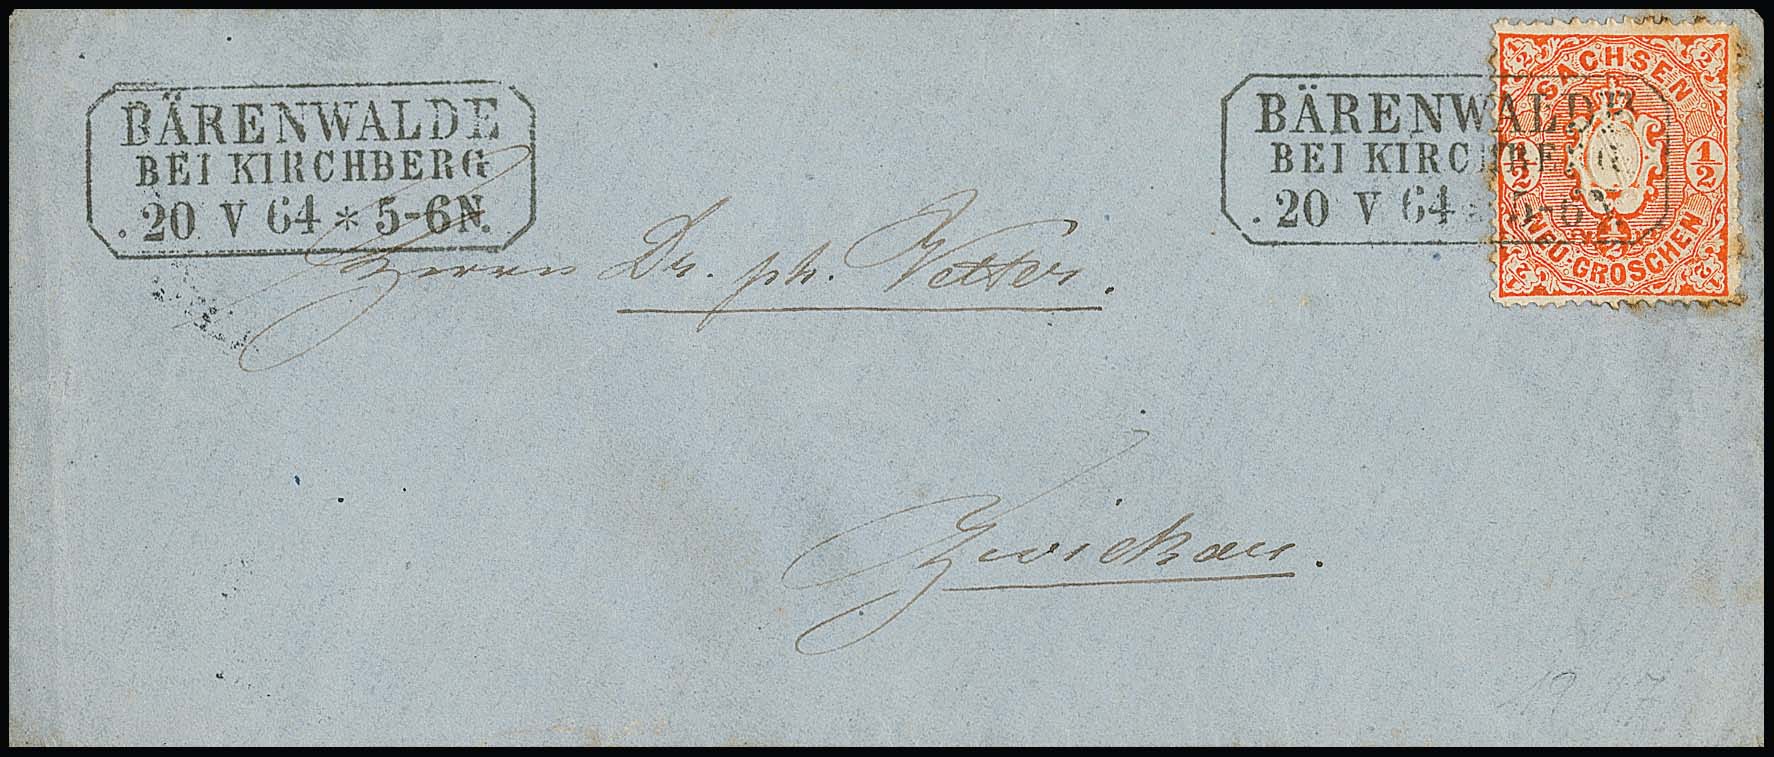 BÄRENWALDE
BEI KIRCHBERG
20 V 64 * 5-6N.
BÄRENWALDE
BEI KIRCHBERG
20 V 64 * 5-6N
SACHSEN
1/2 1/2
NEU-GROSCHEN
Herrn Dr. ph. Vetter.
Zwickau.